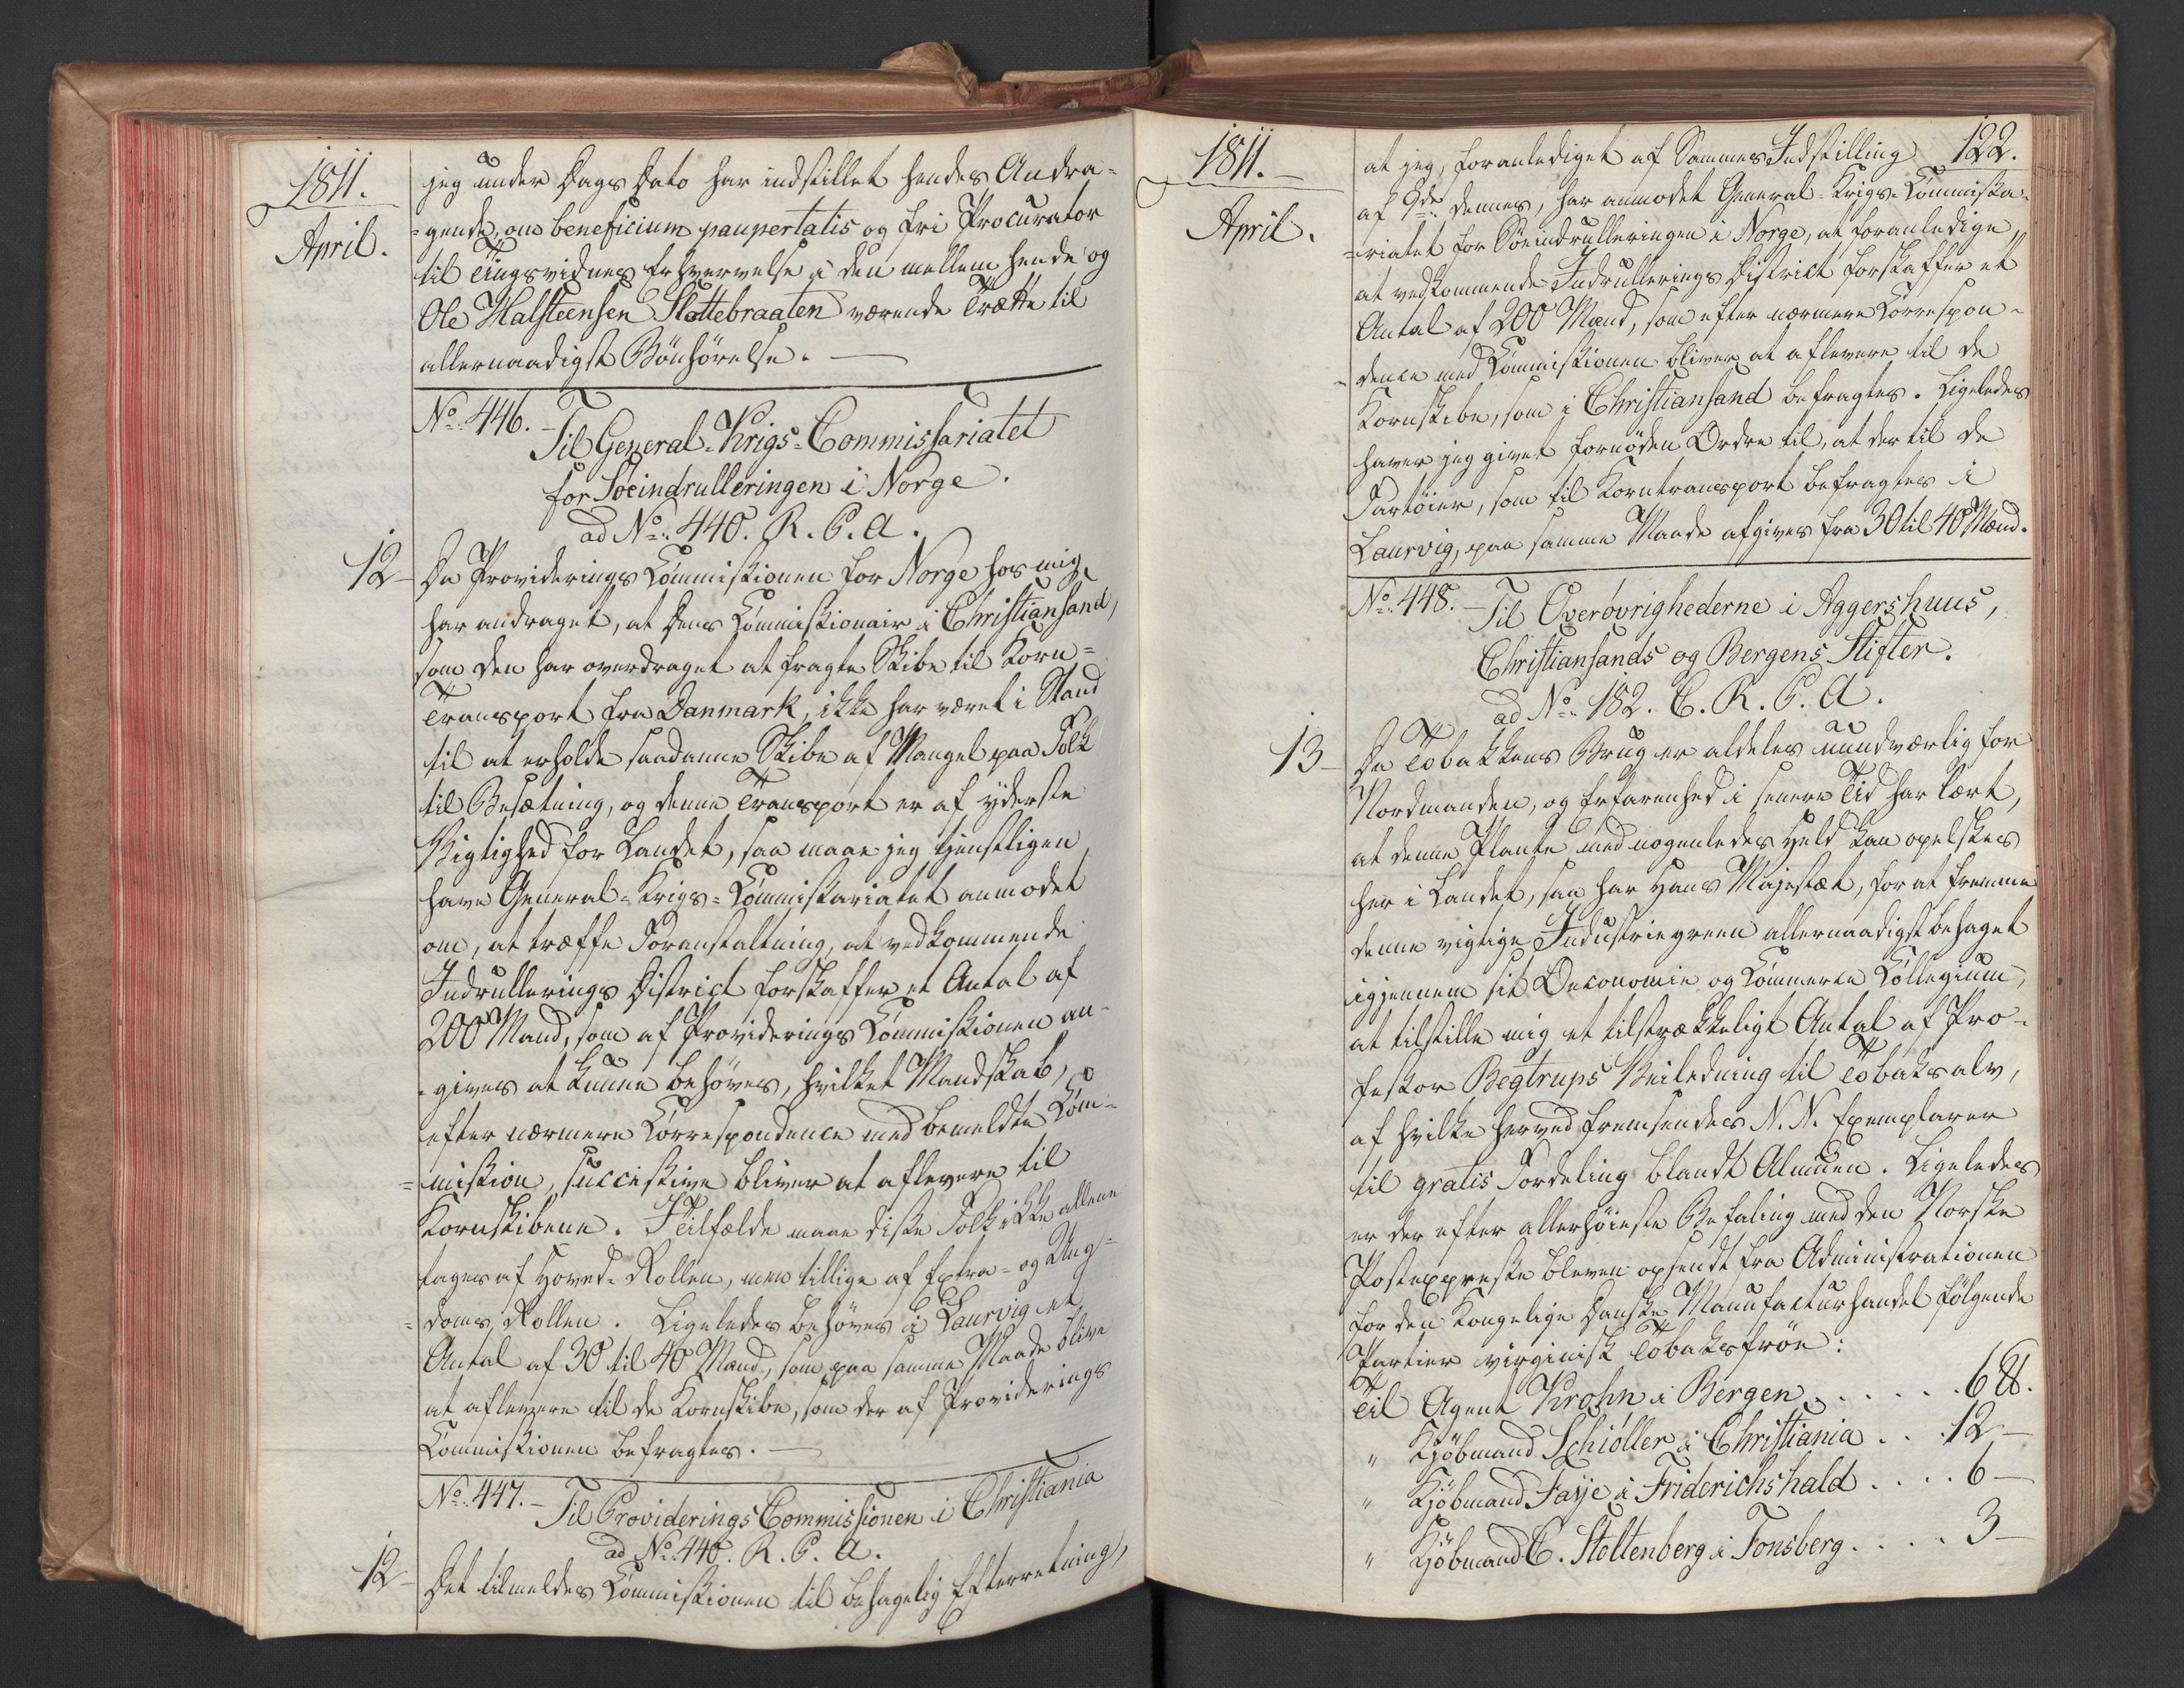 1811.
April.
jeg under Dags Dato har indstillet hendes Andra-
-gende, om beneficium paupertatis og fri Procurator
til Tingsvidnes Erhvervelse i den mellem hende og
Ole Halsteensen Slottebraaten værende Trætte til
allernaadigst Bönhörelse.
No. 446.-
Til General-Krigs-Commissariatet
for Söeindrulleringen i Norge.
ad No. 440. R. P. A.
12- Da Provideringskommissionen for Norge hos mig
har andraget, at dens Kommissionair i Christiansand,
som den har overdraget at fragte Skibe til Korn-
Transport fra Danmark, ikke har været i Stand
til at erholde saadanne Skibe af Mangel paa Folk
til Besætning, og denne Transport er af yderste
Vigtighed for Landet, saa maae jeg tjenstligen
have General-Krigs-Kommissariatet anmodet
om, at træffe Foranstaltning, at vedkommende
Indrullerings District forskaffer et Antal af
200 Mand, som af Provideringskommissionen an-
-gives at kunne behöves, hvilket Mandskab,
efter nærmere Korrespondence med bemeldte Kom-
-mission, succissive bliver at aflevere til
Kornskibene. I Feilfælde maae disse Folk ikke allene
tages af Hoved-Rollen, men tillige af Extra- og Ung-
-doms Rollen. Ligeledes behöves i Laurvig et
Antal af 30 til 40 Mand, som paa samme Maade blive
at aflevere til de Kornskibe, som der af Providerings
Kommissionen befragtes.
No. 447.- Til Providerings Commissionen i Christiania
ad No. 440. R. P. A.
12- Det tilmeldes Kommissionen til behagelig Efterretning,
1811.-
April.
122.
at jeg, foranlediget af Sammes Indstilling
af 9de dennes, har anmodet General-Krigs-Kommissa-
-riatet for Söeindrulleringen i Norge, at foranledige,
at vedkommende Indrullerings District forskaffer et
Antal af 200 Mand, som efter nærmere Korrespon-
-dence med Kommissionen bliver at aflevere til de
Kornskibe, som i Christiansand befragtes. Ligeledes
haver jeg givet fornöden Ordre til, at der til de
Fartöier, som til Korntransport befragtes i
Laurvig, paa samme Maade afgives fra 30 til 40 Mand.
No. 448.- Til Overövrighederne i Aggershuus,
Christiansands og Bergens Stifter.
ad No. 182. C. R. P. A.
13- Da Tobakkens Brug er aldeles uundværlig for
Nordmanden, og Erfarenhed i senere Tid har lært,
at denne Plante med nogenledes Held kan opelskes
her i Landet, saa har Hans Majestæt, for at fremme
denne vigtige Industriegreen allernaadigst behaget
igjennem sit Oeconomie og Kommerce Kollegium,
at tilstille mig et tilstrækkeligt Antal af Pro-
fessor Begtrups Veiledning til Tobaksalv,
af hvilke herved fremsendes N. N. Exemplarer
til gratis Fordeling blandt Almuen. Ligeledes
er der efter allerhöieste Befaling med den Norske
Postexpresse bleven opsendt fra Administrationen
for den Kongelige Danske Manufacturhandel fölgende
Partier virginisk Tobaksfröe:
Til Agent Krohn i Bergen . . . . . . 6 ℔.
" Kjöbmand Schiöller i Christiania . . . 12 -
" Kjöbmand Faye i Friderichshald . . . . 6 -
" Kjöbmand C. Stoltenberg i Tonsberg . . . . 3 -